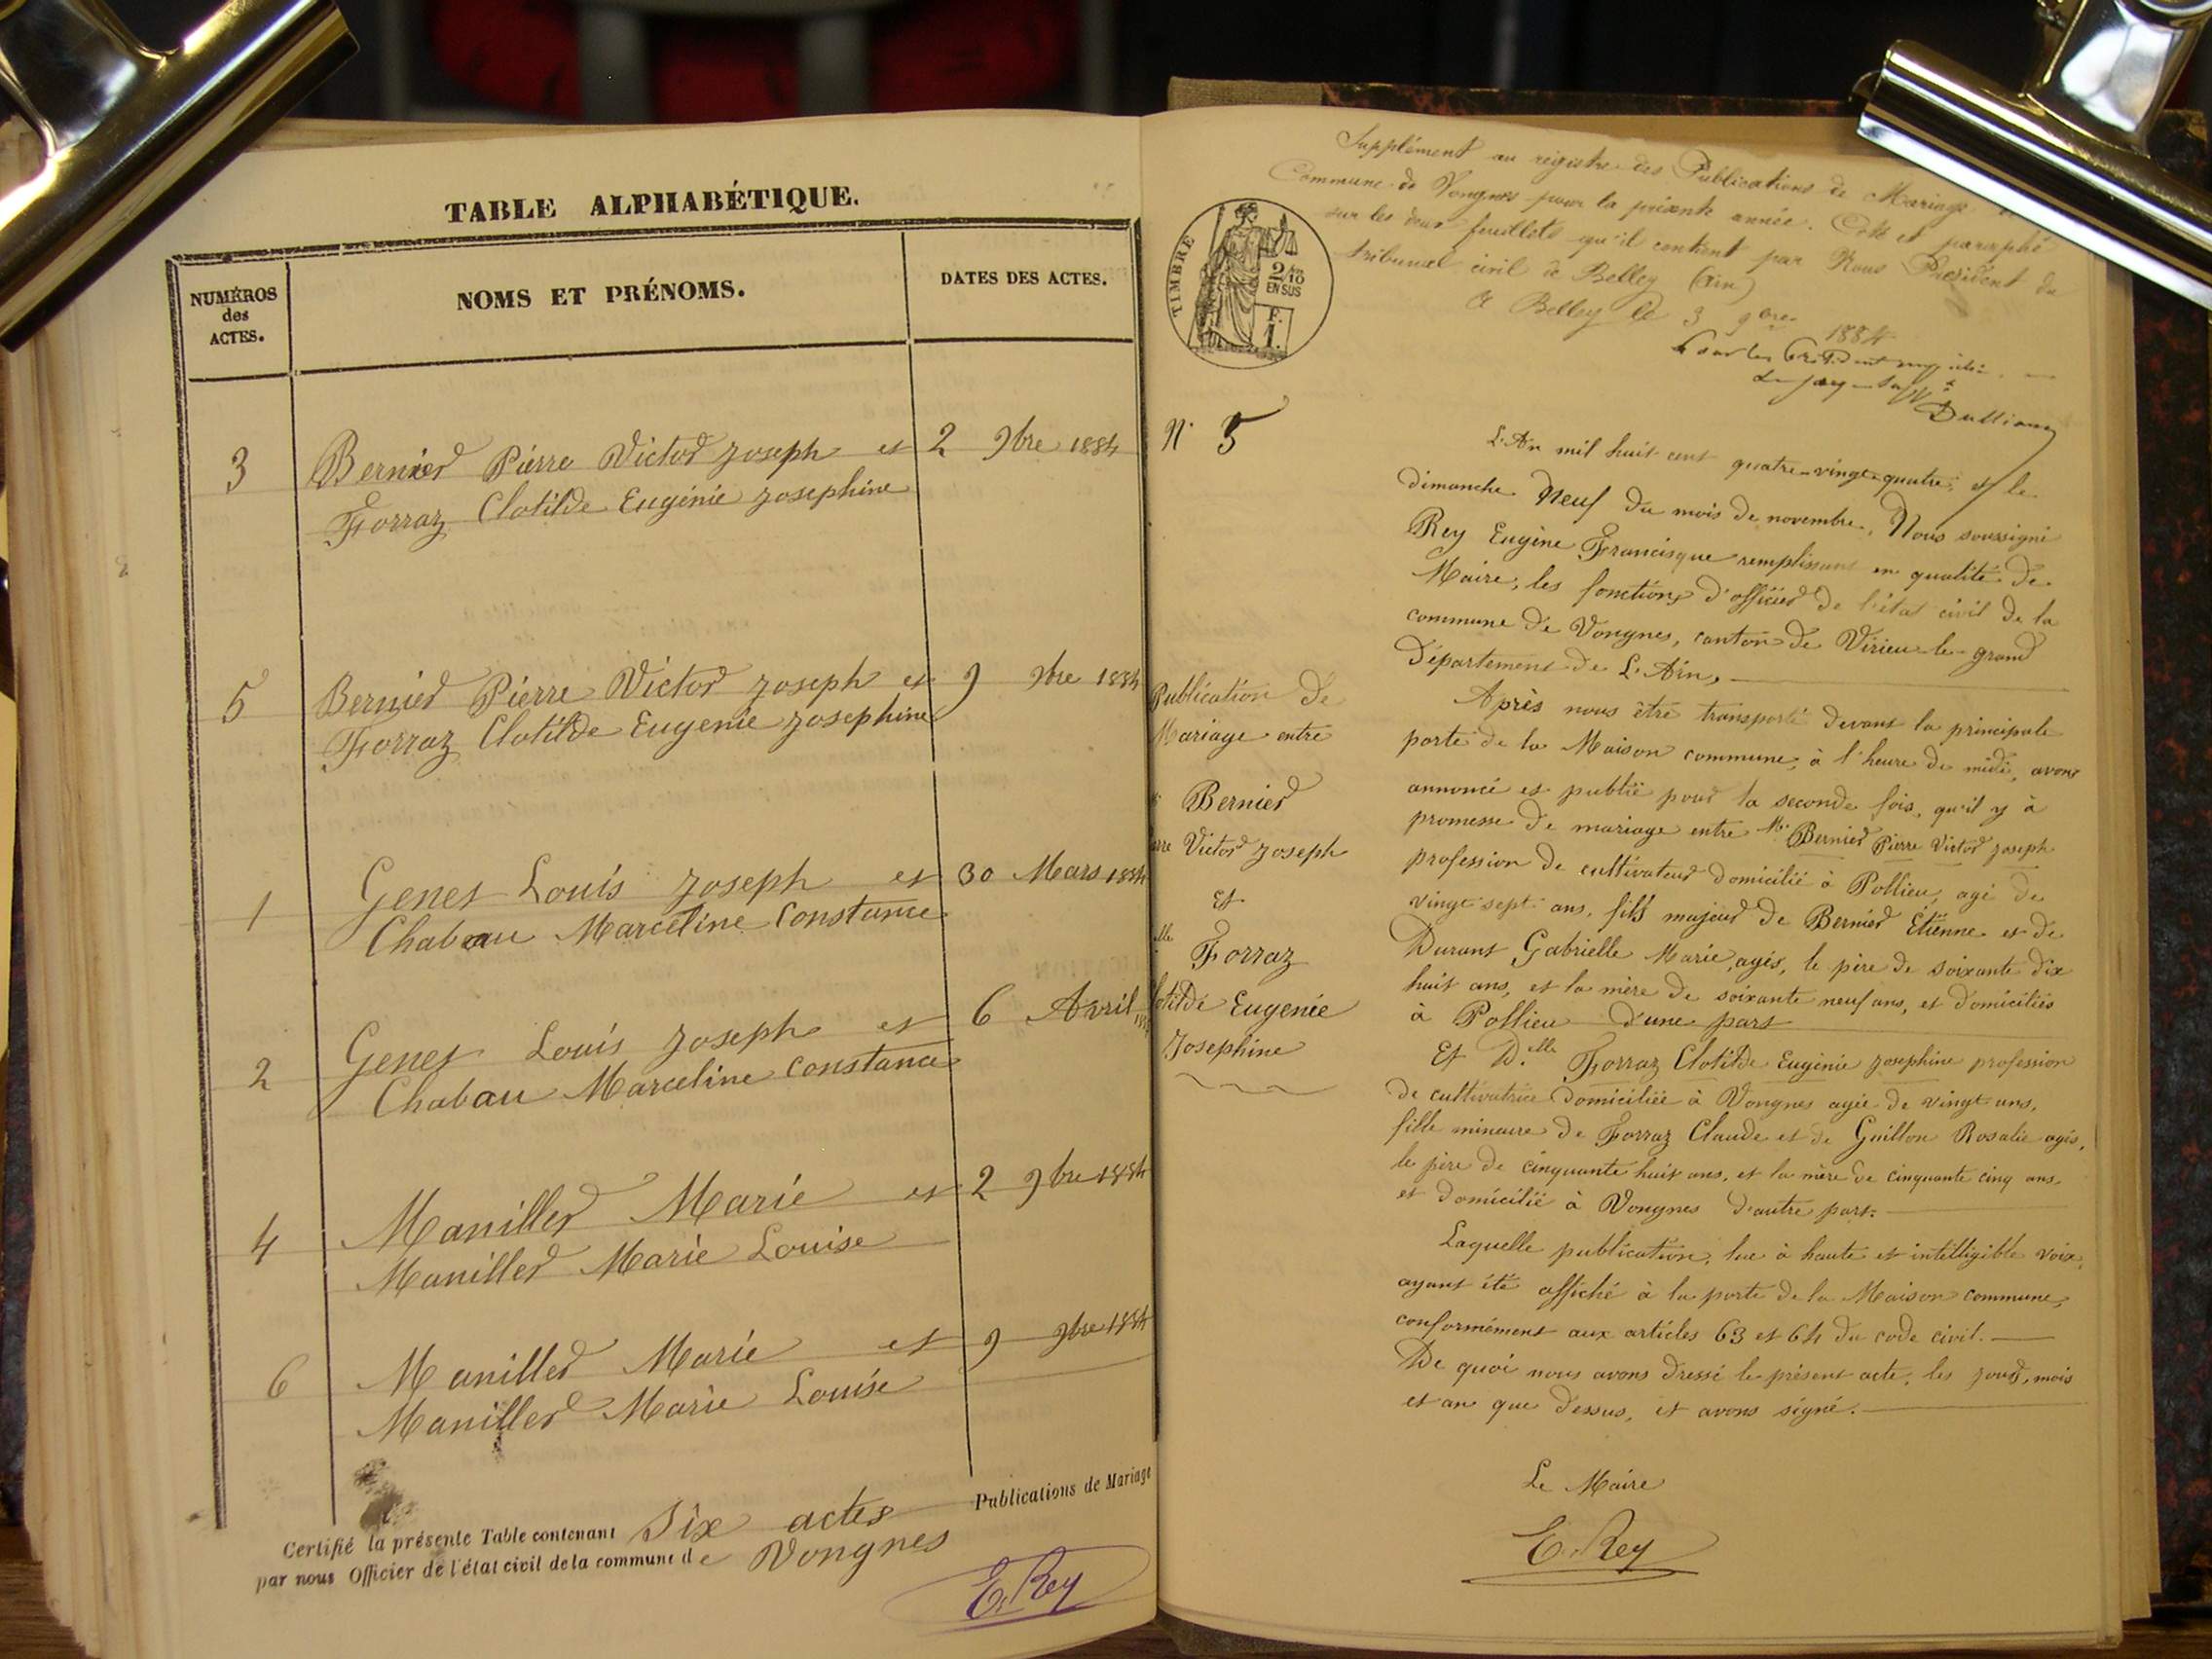 TABLE ALPHABÉTIQUE.
NUMÉROS
des
ACTES.
NOMS ET PRÉNOMS.
DATES DES ACTES.
3 Bernier Pierre Victor Joseph et 2 9bre 1884
Forraz Clotilde Eugénie Josephine
5 Bernier Pierre Victor Joseph et 9 9bre 1884
Forraz Clotilde Eugenie Josephine
1 Genet Louis Joseph et 30 Mars 1884
Chabau Marceline Constance
2 Genet Louis Joseph et 6 Avril
Chabau Marceline Constance
4 Maniller Marie et 2 9bre 1884
Maniller Marie Louise
6 Maniller Marie et 9 9bre 1884
Maniller Marie Louise
Certifié la présente Table contenant Six actes Publications de Mariage
par nous Officier de l'état civil de la commune de Vongnes
E. Rey
Supplément au registre des Publications de Mariage
Commune de Vongnes pour la présente année. Coté et paraphé
sur les deux feuillets qu'il contient par Nous Président du
tribunal civil de Belley (Ain)
A Belley le 3 9bre 1884
TIMBRE
2/10
EN SUS
F.
1.
N° 5
Publication de
Mariage entre
Bernier
Victor Joseph
Et
elle
Forraz
Eugenée
Josephine
L'An mil huit cent quatre-vingt-quatre, et le
dimanche Neuf du mois de novembre, Nous soussigné
Rey Eugène Francisque remplissant en qualité de
Maire, les fonctions d'officier de l'état civil de la
commune de Vongnes, canton de Virieu-le-grand
Département de L'Ain,
Après nous être transporté devant la principale
porte de la Maison commune, à l'heure de midi, avons
annoncé et publié pour la seconde fois, qu'il y à
promesse de mariage entre Mr Bernier Pierre Victor Joseph
profession de cultivateur domicilié à Pollieu, agé de
vingt-sept ans, fils majeur de Bernier Étienne et de
Durant Gabrielle Marie, agés, le père de soixante dix
huit ans, et la mère de soixante neuf ans, et domiciliés
à Pollieu d'une part
Et D.elle Forraz Clotilde Eugénie Josephine profession
de cultivatrice domiciliée à Vongnes agée de vingt ans,
fille mineure de Forraz Claude et de Guillon Rosalie agés,
le père de cinquante huit ans, et la mère de cinquante cinq ans,
et domicilié à Vongnes d'autre part.
Laquelle publication, lue à haute et intelligible voix,
ayant été affiché à la porte de la Maison commune,
conformément aux articles 63 et 64 du code civil.
De quoi nous avons dressé le présent acte, les jour, mois
et an que dessus, et avons signé.
Le Maire
E. Rey